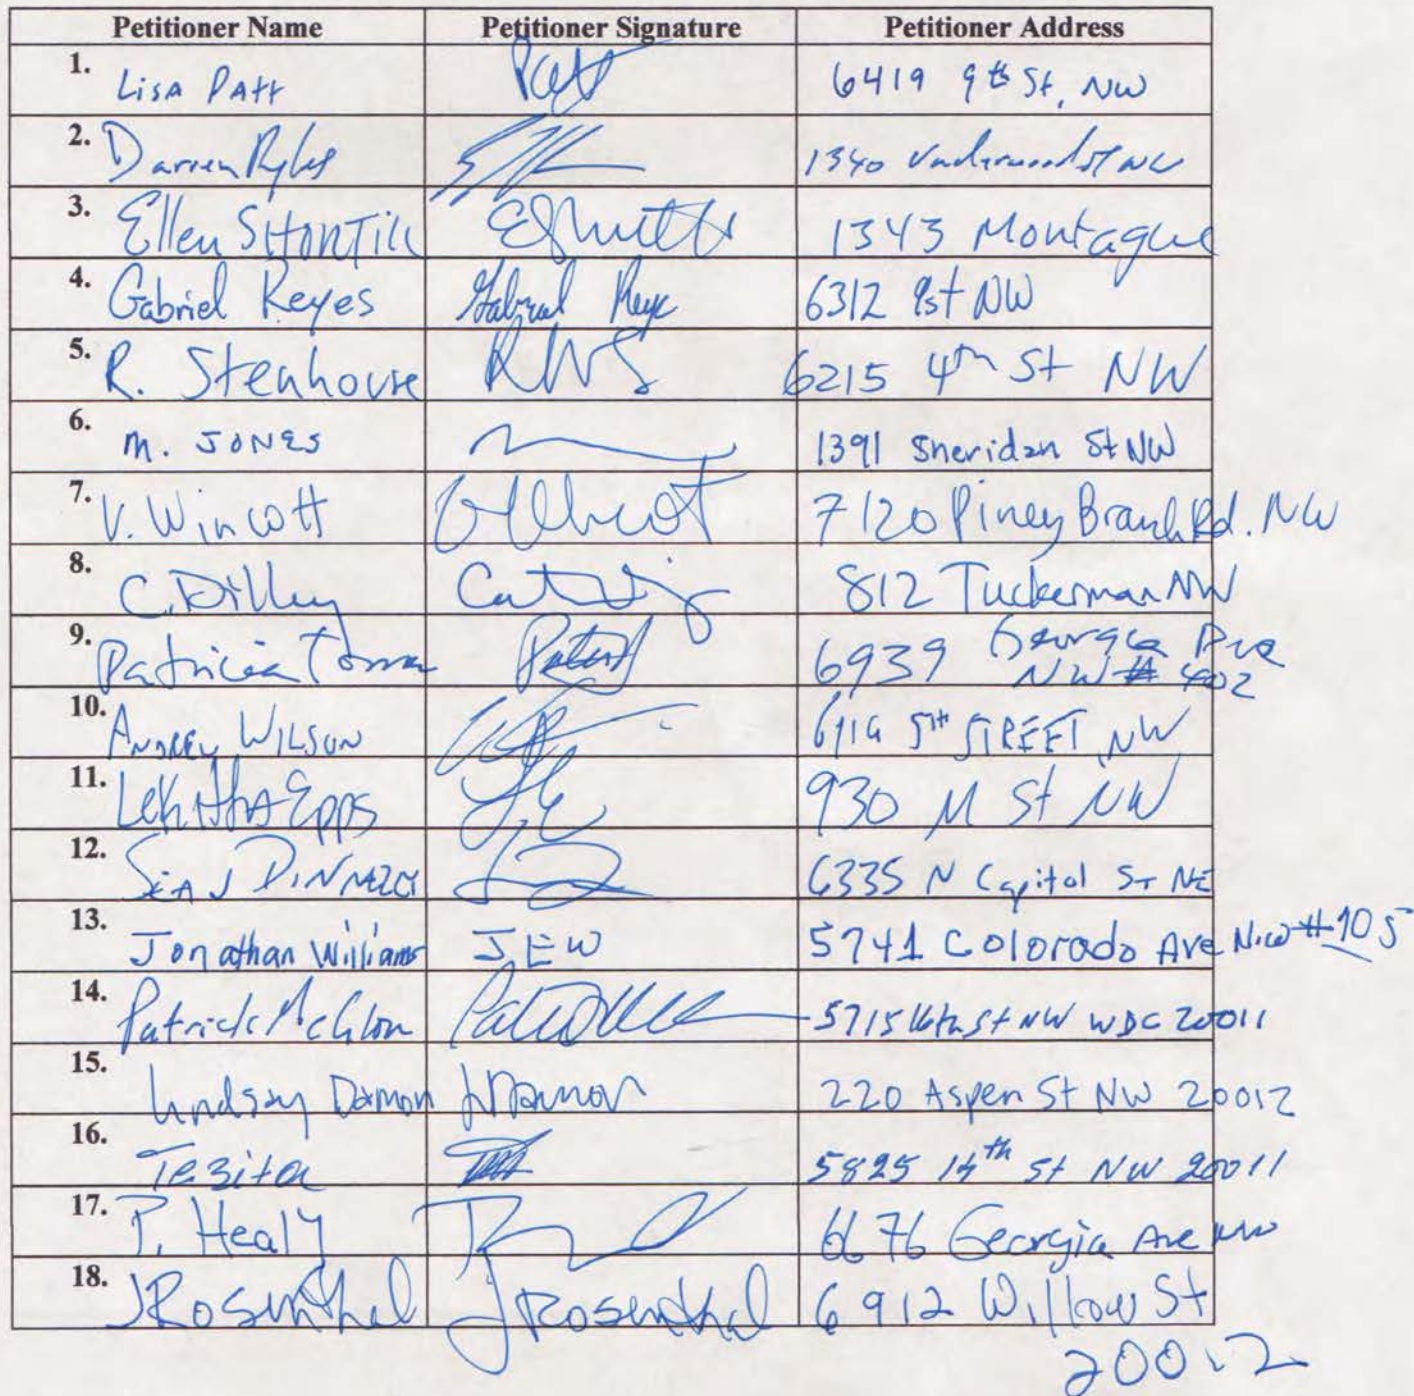 Petitioner Name Petitioner Signature Petitioner Address
1. Lisa Patt Patt 6419 9th St, NW
2. Darren 1340 Underwood St NW
3. Ellen 1343 Montague
4. Gabriel Reyes Gabriel Reye 6312 9st NW
5. R. Stenhouse RWS 6215 4th St NW
6. M. JONES 1391 Sheridan St NW
7. V. Wincott 7120 Piney Branch Rd. NW
8. C. Dilley 812 Tuckerman NW
9. Patricia 6939 Georgia Ave
NW # 402
10. WILSON 5TH STREET, NW
11. Epps 930 M St NW
12. 6335 N Capitol ST NE
13. Jonathan Williams JEW 5741 Colorado Ave N.W #105
14. Patrick 5715 16th St NW WDC 20011
15. Lindsay Damon 220 Aspen St NW 20012
16. Tezita 5825 14th St NW 20011
17. P. Healy 6676 Georgia Ave NW
18. JRosenthal JRosenthal 6912 Willow St
20012